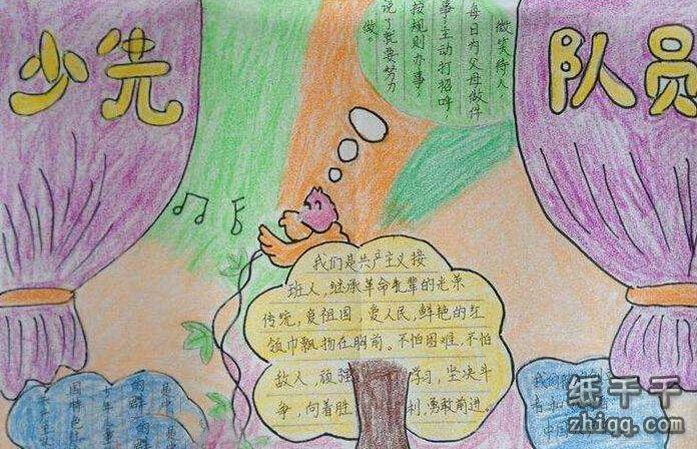 少先
队员
微笑待人。
每日为父母做件
事;主动打招呼;
按规则办事;
说了就要努力
做。
我们是共产主义接
班人,继承革命先辈的光荣
传统,爱祖国,爱人民,鲜艳的红
领巾飘扬在胸前。不怕困难,不怕
敌人,顽强学习,坚决斗
争,向着胜利,勇敢前进。
国特色
少年
群的
中国
纸千千
zhiqq.com